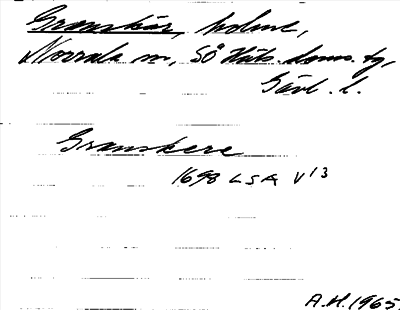 Granskär, holme,
Norrala sn, SÖ Häls. doms. tg,
Gävl. l.
Granskere
1698 LSA V 13
A.H. 1965.